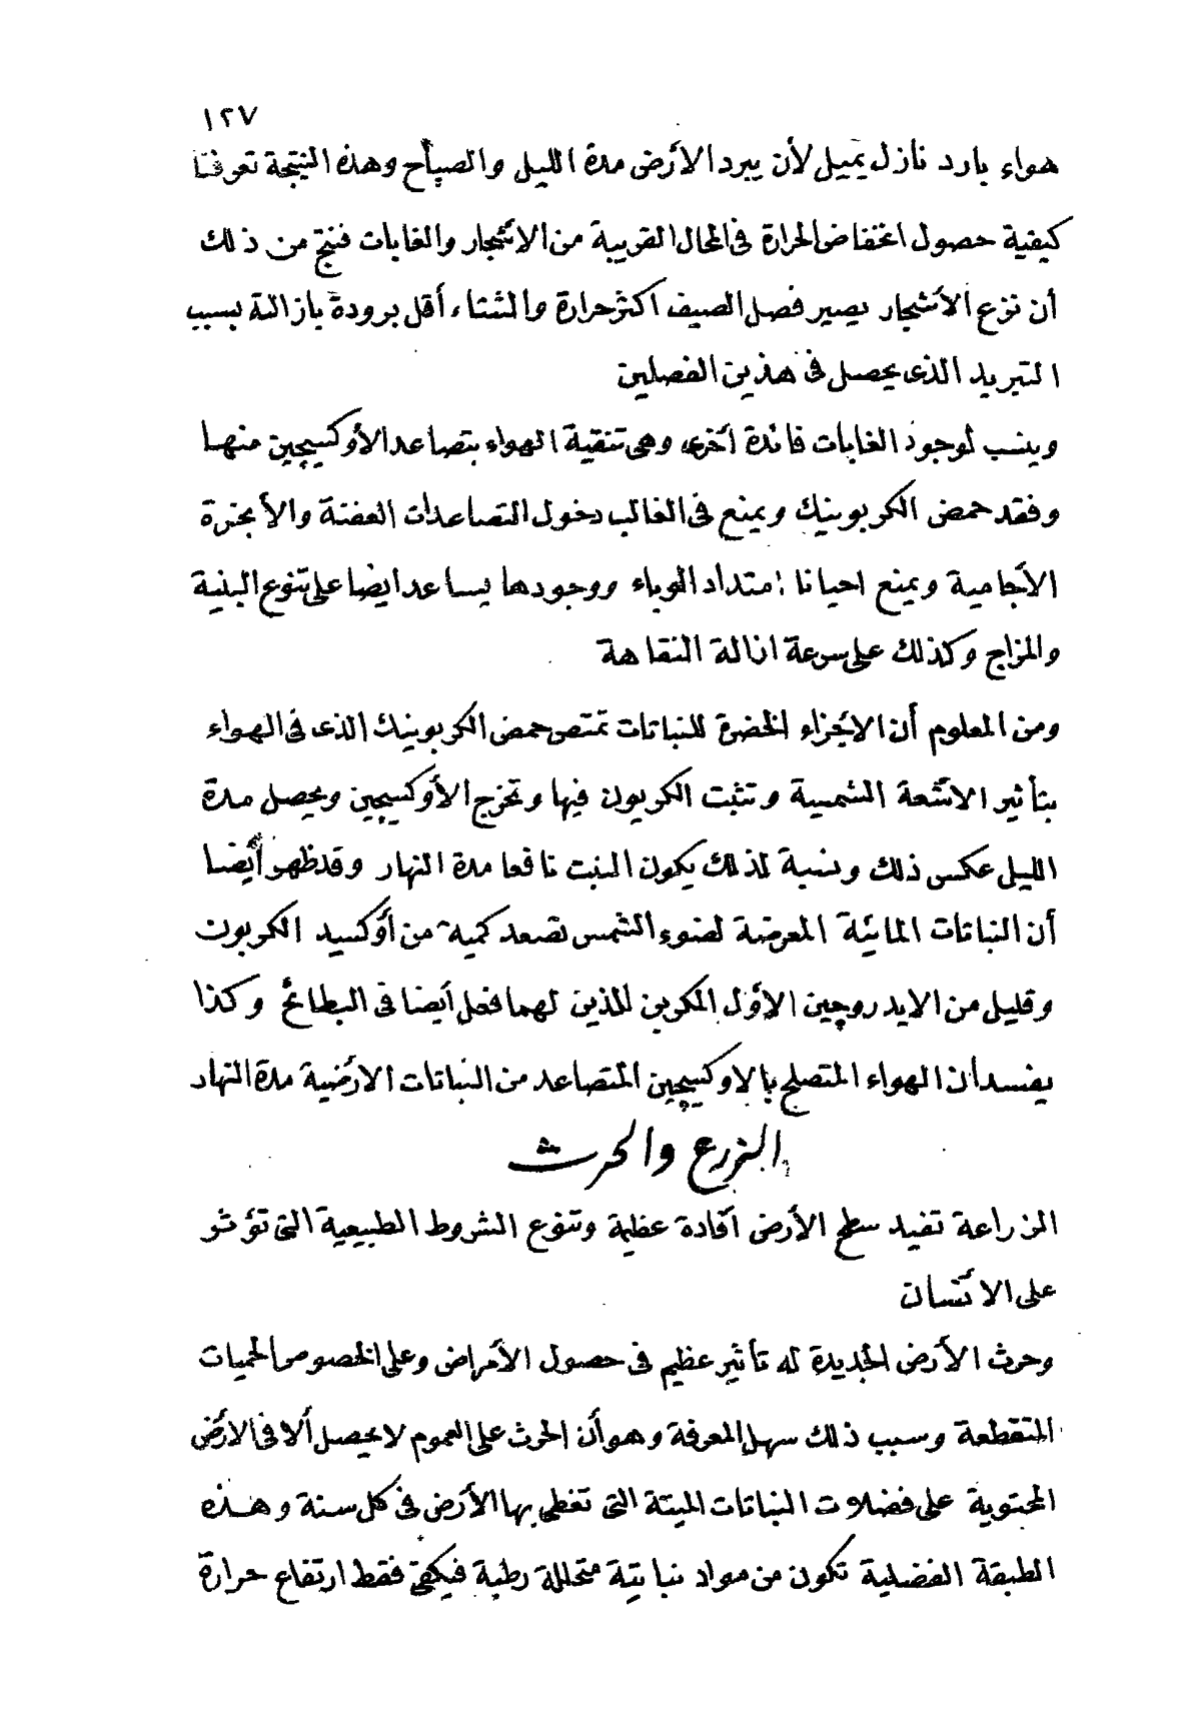 ١٢٧
هواء بارد نازل يميل لأن يبرد الأرض مدة الليل والصباح وهذه النتيجة تعرفنا
كيفية حصول انخفاض الحرارة فى المحال القريبة من الأشجار والغابات فينتج من ذلك
أن نزع الأشجار يصير فصل الصيف أكثر حرارة والشتاء أقل برودة بازالته بسبب
التبريد الذى يحصل فى هذين الفصلين
وينسب لوجود الغابات فائدة أخرى وهى تنقية الهواء بتصاعد الأوكسيجين منها
وفقد حمض الكربونيك ويمنع فى الغالب دخول التصاعدات العفنة والأبخرة
الآجامية ويمنع احيانا امتداد الوباء ووجودها يساعد ايضا على تنوع البنية
والمزاج وكذلك على سرعة ازالة النقاهة
ومن المعلوم أن الأجزاء الخضرة للنباتات تمتص حمض الكربونيك الذى فى الهواء
بتأثير الاشعة الشمسية وتثبت الكربون فيها وتخرج الأوكسيجين ويحصل مدة
الليل عكس ذلك ونسبة لذلك يكون النبت نافعا مدة النهار وقد ظهر أيضا
أن النباتات المائية المعرضة لضوء الشمس تصعد كمية من أوكسيد الكربون
وقليل من الايدروجين الأول المكربن اللذين لهما فعل أيضا فى البطائح وكذا
يفسدان الهواء المتصلح بالاوكسيجين المتصاعد من النباتات الارضية مدة النهار
الزرع والحرث
الزراعة تفيد سطح الأرض افادة عظيمة وتنوع الشروط الطبيعية التى تؤثر
على الانسان
وحرث الأرض الجديدة له تأثير عظيم فى حصول الأمراض وعلى الخصوص الحميات
المتقطعة وسبب ذلك سهل المعرفة وهو أن الحرث على العموم لا يحصل ألا فى الارض
المحتوية على فضلات النباتات الميتة التى تغطى بها الأرض فى كل سنة وهذه
الطبقة الفضلية تكون من مواد نباتية متحللة رطبة فيكفى فقط ارتفاع حرارة